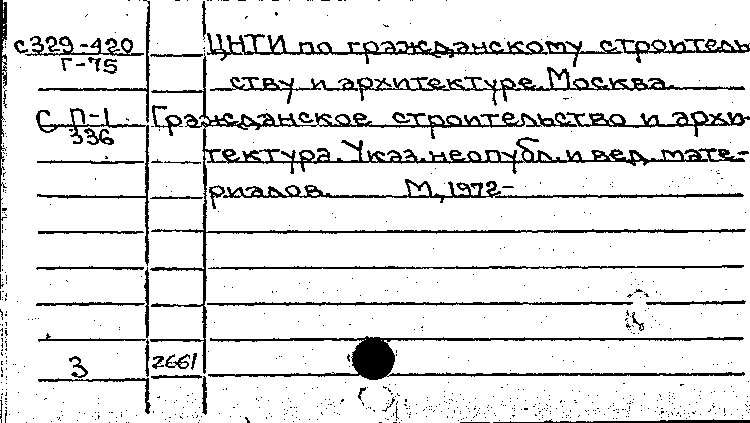 с329-420 ЦНТИ по гражданскому строитель
Г-75
ству и архитектуре. Москва.
С П-1 Гражданское строительство и архи-
336
тектура. Указ. неопубл. и вед. мате-
риалов. М., 1972-
3 2661